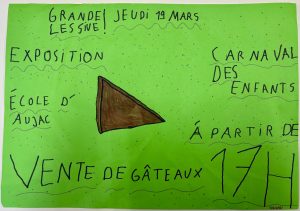 GRANDE! JEUDI 19 MARS
LESSIVE!
EXPOSITION
CARNAVAL
DES
ENFANTS
ÉCOLE D'
AUJAC
À PARTIR DE
17H
VENTE DE GÂTEAUX